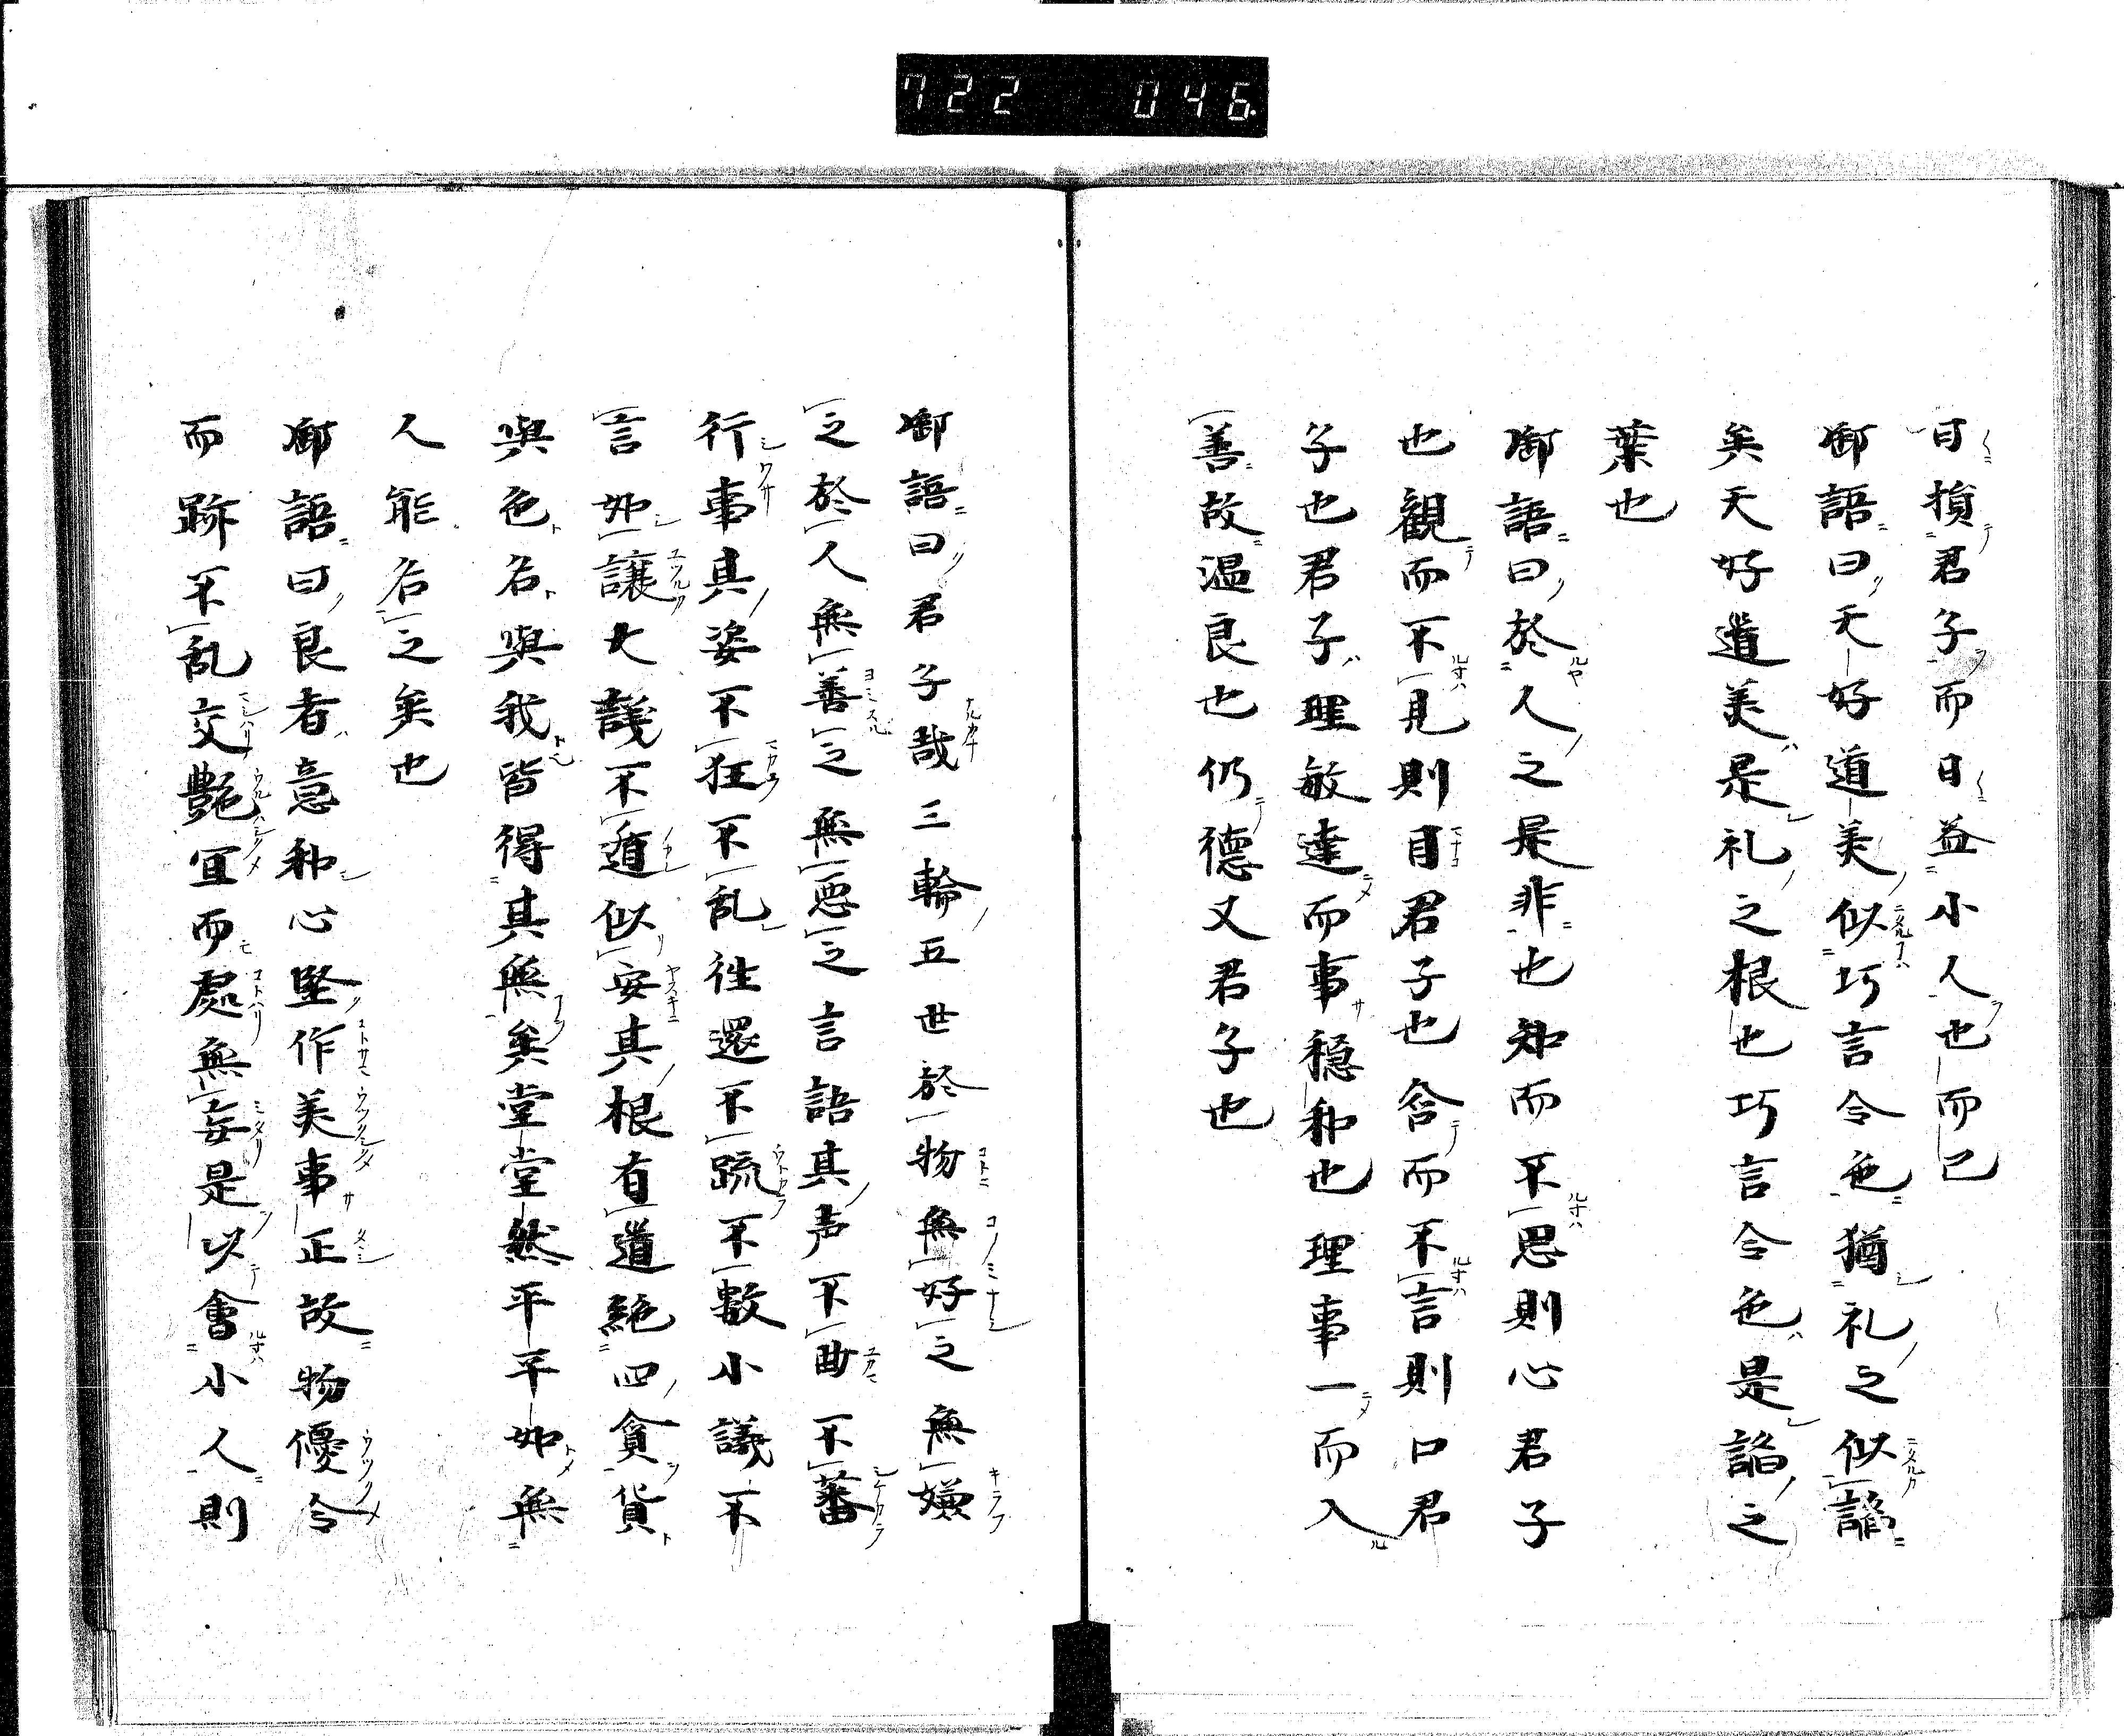 722 046
日損君子而日益小人也而已
御語曰天好道美似巧言令色猶礼之似諂
矣天好道美是礼之根也巧言令色是諂之
葉也
御語曰於人之是非也知而不思則心君子
也觀而不見則目君子也含而不言則口君
子也君子理敏達而事穏和也理事一而入
善故温良也仍德又君子也
御語曰君子哉三輪五世於物無好之無嫌
之於人無善之無悪之言語其声不曲不蕃
行事其姿不狂不乱往還不疏不數小議不
言如讓大議不遁似安其根有道絶四貪貨
與色名與我皆得其無矣堂堂然平平如無
人能名之矣也
御語曰良者意和心堅作美事正故物優令
而跡不乱交艶宜而處無妄是以會小人則